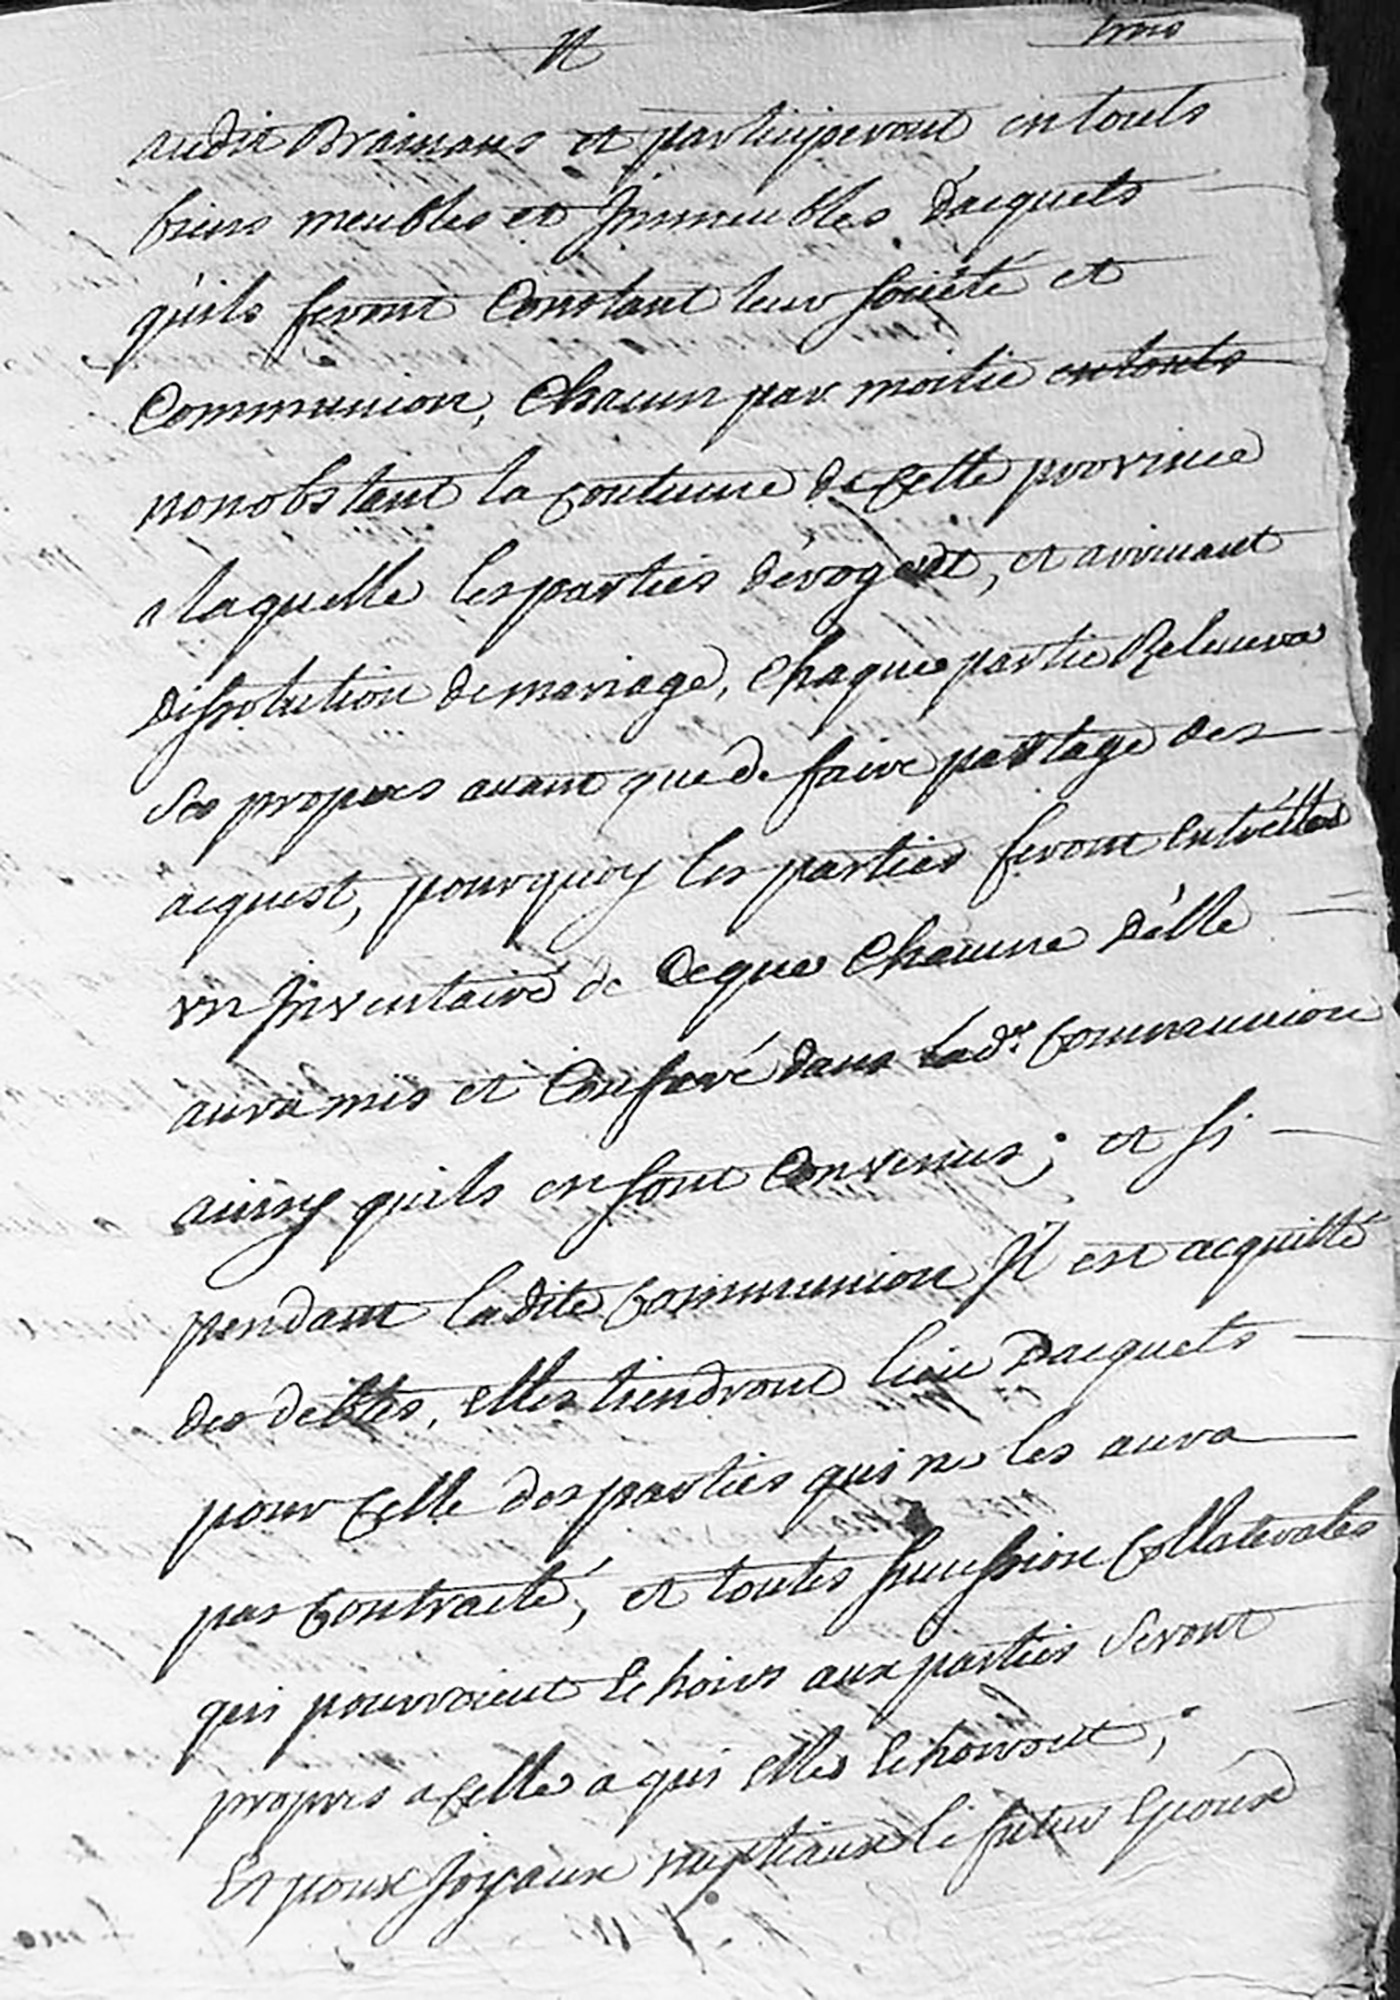 trois
audit Brainans et participeront en touts
biens meubles et Jmmeubles d'acquets
qu'ils feront Constant leur société et
Communion, Chacun par moitie en touts
nonobstant la coutume de cette province
a laquelle les parties dérogent, et arrivant
dissolution de mariage, chaque partie Relevera
ses propres avant que de faire partage des
acquest, pourquoy les parties feront entr'élles
un Jnventaire de Ceque Chacune d'élle
aura mis et Conferé dans lad.te Communion
ainsy quils en sont Convenus; et si
pendant ladite Communion Jl est acquitté
des debtes, elles tiendront lieu d'acquets
pour Celle des parties qui ne les aura
pas Contracté, et toutes succession Collaterales
qui pourroient Echoirs aux parties seront
propres a Celle a qui elles Echoiront;
Et pour Joyaux nuptiaux le futur Epoux